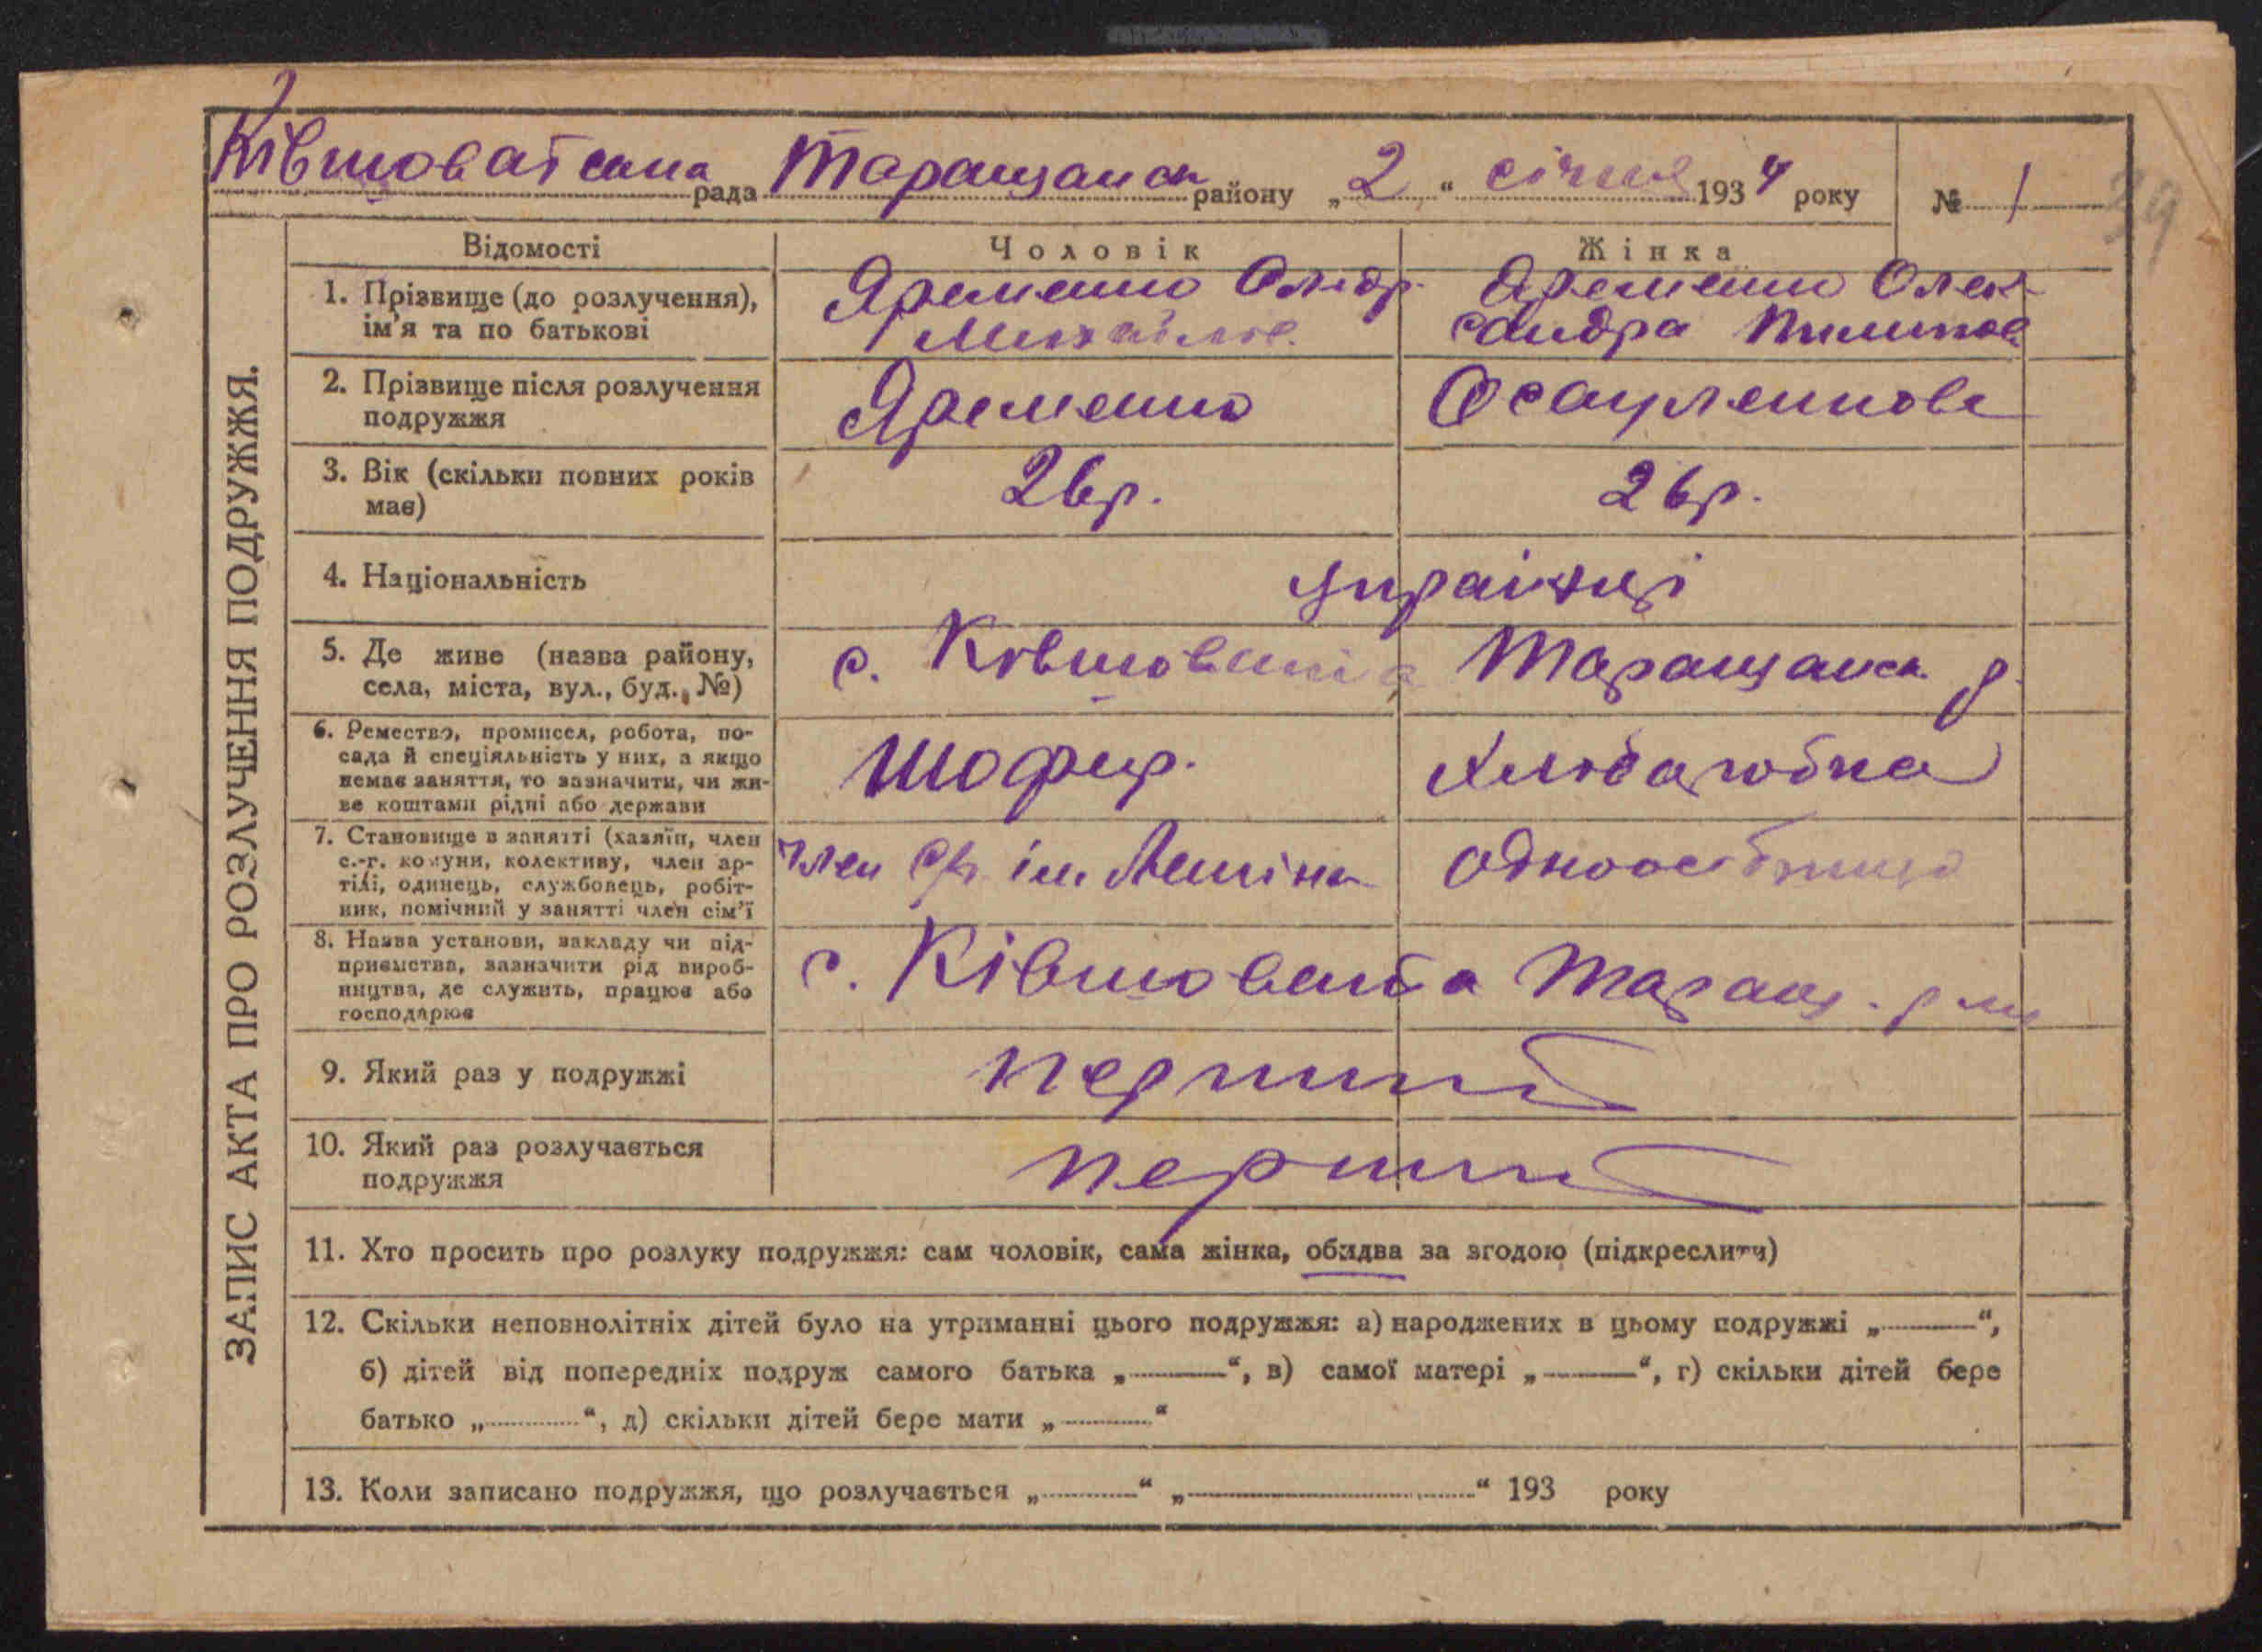 Ківшоватська рада Таращанск району „2“ січня 1934 року № 1
39
ЗАПИС АКТА ПРО РОЗЛУЧЕННЯ ПОДРУЖЖЯ.
Відомості Чоловік Жінка
1. Прізвище (до розлучення), ім'я та по батькові
Яременко Андр.
Михайлов.
Яременко Олек-
сандра Пилипов
2. Прізвище після розлучення подружжя
Яременко Осауленкова
3. Вік (скільки повних років має)
26р. 26р.
4. Національність українці
5. Де живе (назва району,
села, міста, вул., буд., №)
с. Ківшовата Таращанск. р.
6. Ремество, промисел, робота, по-
сада й спеціяльність у них, а якщо
немає заняття, то зазначити, чи жи-
ве коштами рідні або держави
Шофер. хлібаробка
7. Становище в занятті (хазяїн, член
с.-г. комуни, колективу, член ар-
тілі, одинець, службовець, робіт-
ник, помічний у занятті член сім'ї
член ім. Леніна одноосібниця
8. Назва установи, закладу чи під-
приємства, зазначити рід вироб-
ництва, де служить, працює або
господарює
с. Ківшовата Таращ.
9. Який раз у подружжі перший
10. Який раз розлучається
подружжя
перший
11. Хто просить про розлуку подружжя: сам чоловік, сама жінка, обидва за згодою (підкреслити)
12. Скільки неповнолітніх дітей було на утриманні цього подружжя: а) народжених в цьому подружжі „—“,
б) дітей від попередніх подруж самого батька „—“, в) самої матері „—“, г) скільки дітей бере
батько „.........“, д) скільки дітей бере мати „.........“
13. Коли записано подружжя, що розлучається „.........“ „.........“ 193 року